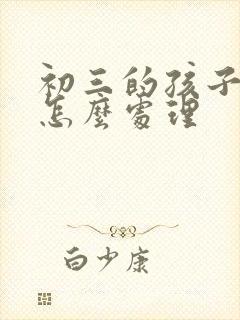 初三的孩子
怎麼處理
白少康